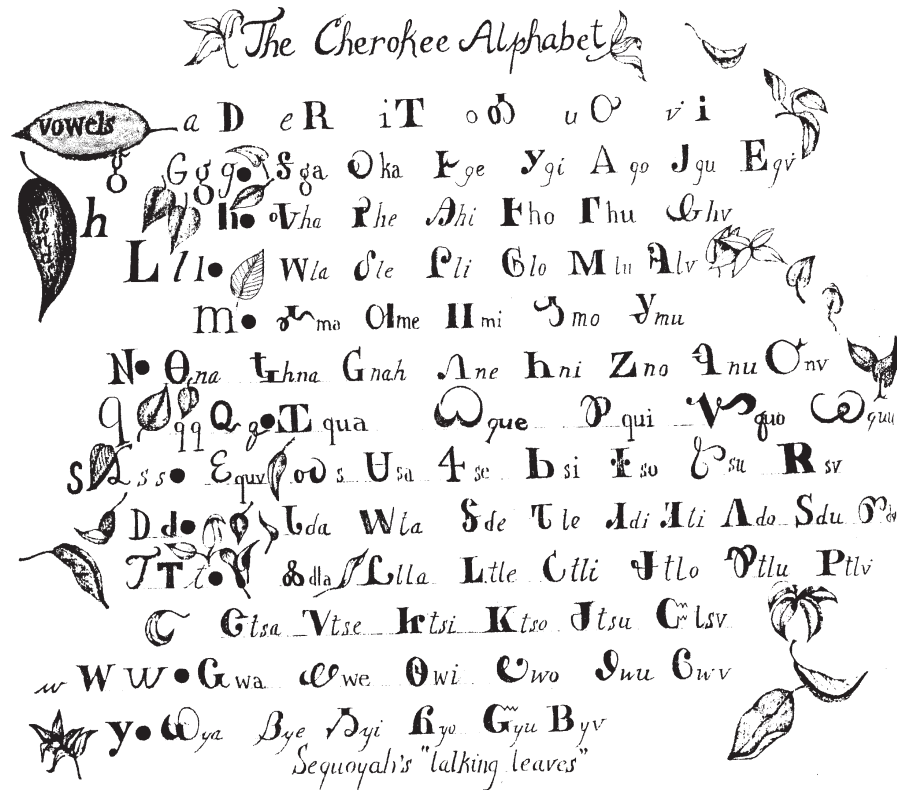 The Cherokee Alphabet
vowels a Ꭰ e Ꭱ i Ꭲ o Ꭳ u Ꭴ v Ꭵ
g G g g • Ꭶ ga Ꭷ ka Ꭸ ge Ꭹ gi Ꭺ go Ꭻ gu Ꭼ gv
h h • Ꭽ ha Ꭾ he Ꭿ hi Ꮀ ho Ꮁ hu Ꮂ hv
L l l • Ꮃ la Ꮄ le Ꮅ li Ꮆ lo Ꮇ lu Ꮈ lv
m • Ꮉ ma Ꮊ me Ꮋ mi Ꮌ mo Ꮍ mu
N • Ꮎ na Ꮏ hna Ꮐ nah Ꮑ ne Ꮒ ni Ꮓ no Ꮔ nu Ꮕ nv
q q q Q q • Ꮖ qua Ꮗ que Ꮘ qui Ꮙ quo Ꮚ quu
s S s s • Ꮛ quv Ꮝ s Ꮜ sa Ꮞ se Ꮟ si Ꮠ so Ꮡ su Ꮢ sv
D d • Ꮣ da Ꮤ ta Ꮥ de Ꮦ te Ꮧ di Ꮨ ti Ꮩ do Ꮪ du Ꮫ dv
T T t • Ꮬ dla Ꮭ tla Ꮮ tle Ꮯ tli Ꮰ tlo Ꮱ tlu Ꮲ tlv
Ꮳ tsa Ꮴ tse Ꮵ tsi Ꮶ tso Ꮷ tsu Ꮸ tsv
w W w • Ꮹ wa Ꮺ we Ꮻ wi Ꮼ wo Ꮽ wu Ꮾ wv
y • Ꮿ ya Ᏸ ye Ᏹ yi Ᏺ yo Ᏻ yu Ᏼ yv
Sequoyah's "talking leaves"